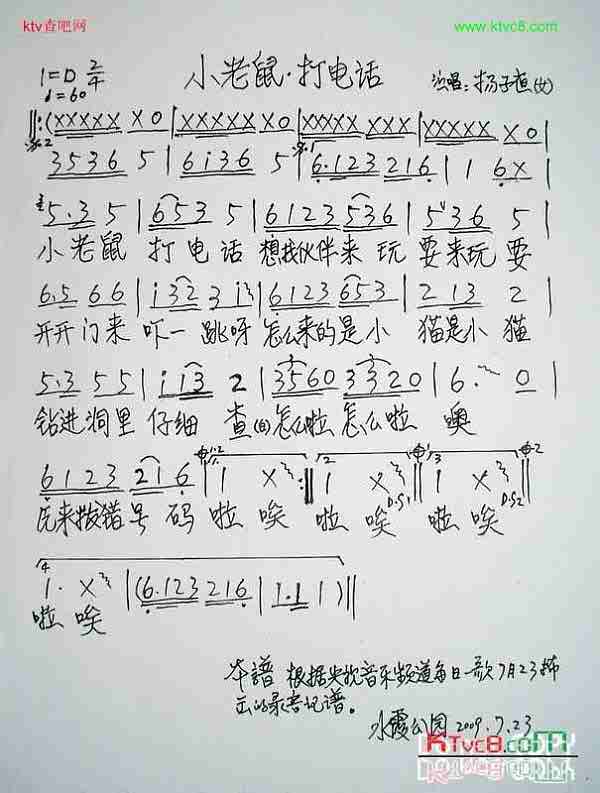 ktv查吧网
www.ktvc8.com
1=D 2/4
♩=60
小老鼠·打电话
演唱:杨子直(女)
‖:(XXXXX X0|XXXXX X0|XXXXX XXX|XXXXX X0|
3536 5|6i36 5|6.123 216|1 6X|
5.3 5|653 5|6123 536|5 36 5|
小老鼠 打电话 想找伙伴来玩 耍来玩耍
6.5 66|i323 i3|6123 653|2 13 2|
开开门来 吓一跳呀 怎么来的是小 猫是小猫
5.3 55|i13 2|3560 3320|6. 0|
钻进洞里 仔细 查(白)怎么啦怎么啦 噢
6123 216|1 X:‖1 X‖1 X‖
原来拨错号码啦 唉 啦 唉 啦 唉
D.S1 D.S2
1. X|(6.123 216|1.1 1)‖
啦 唉
本谱 根据央视音乐频道每日一歌7月23播
出的录音记谱。
水霞公园 2009.7.23
KTvc8.com